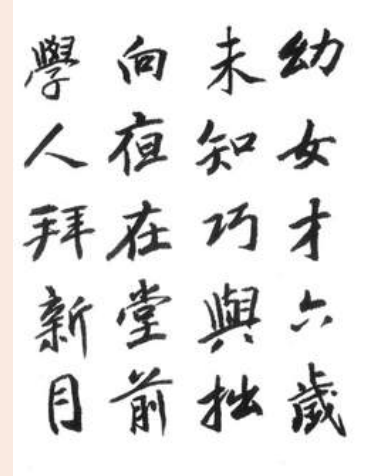 幼女才六歲
未知巧與拙
向夜在堂前
學人拜新月